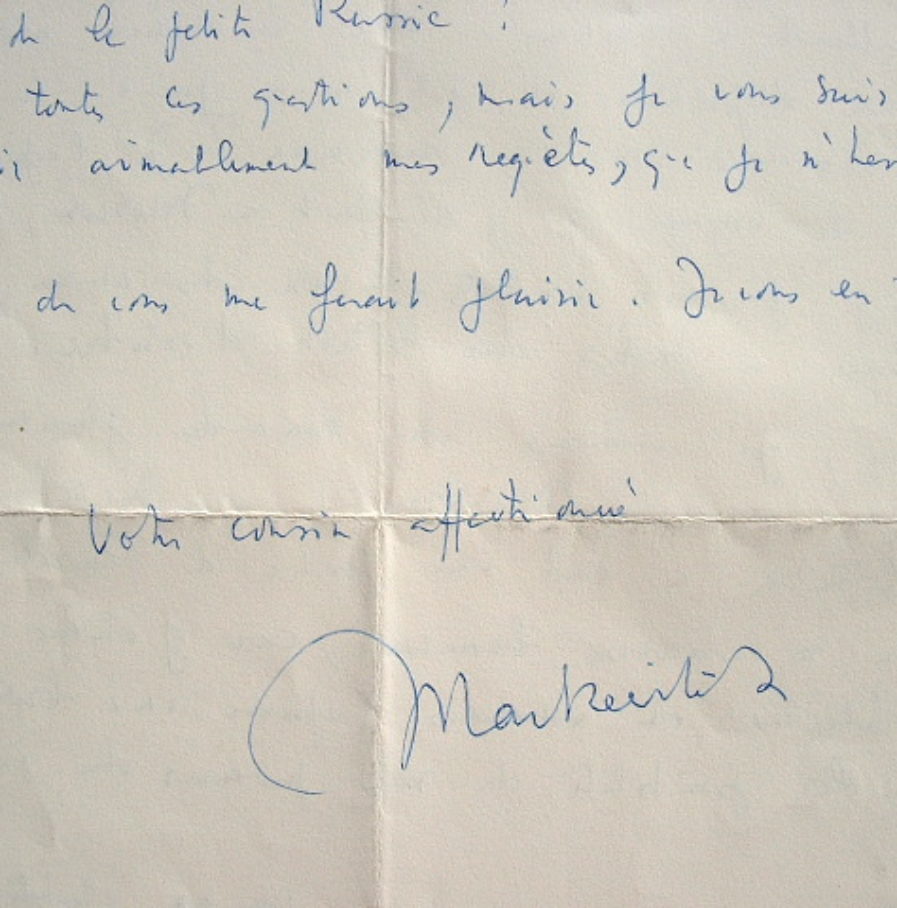 de la petite Russie ?
toutes ces questions, mais je vous suis
aimablement mes requêtes, que je n'hes
de vous me ferait plaisir. Je vous en
Votre cousin affectionné
Markevitch